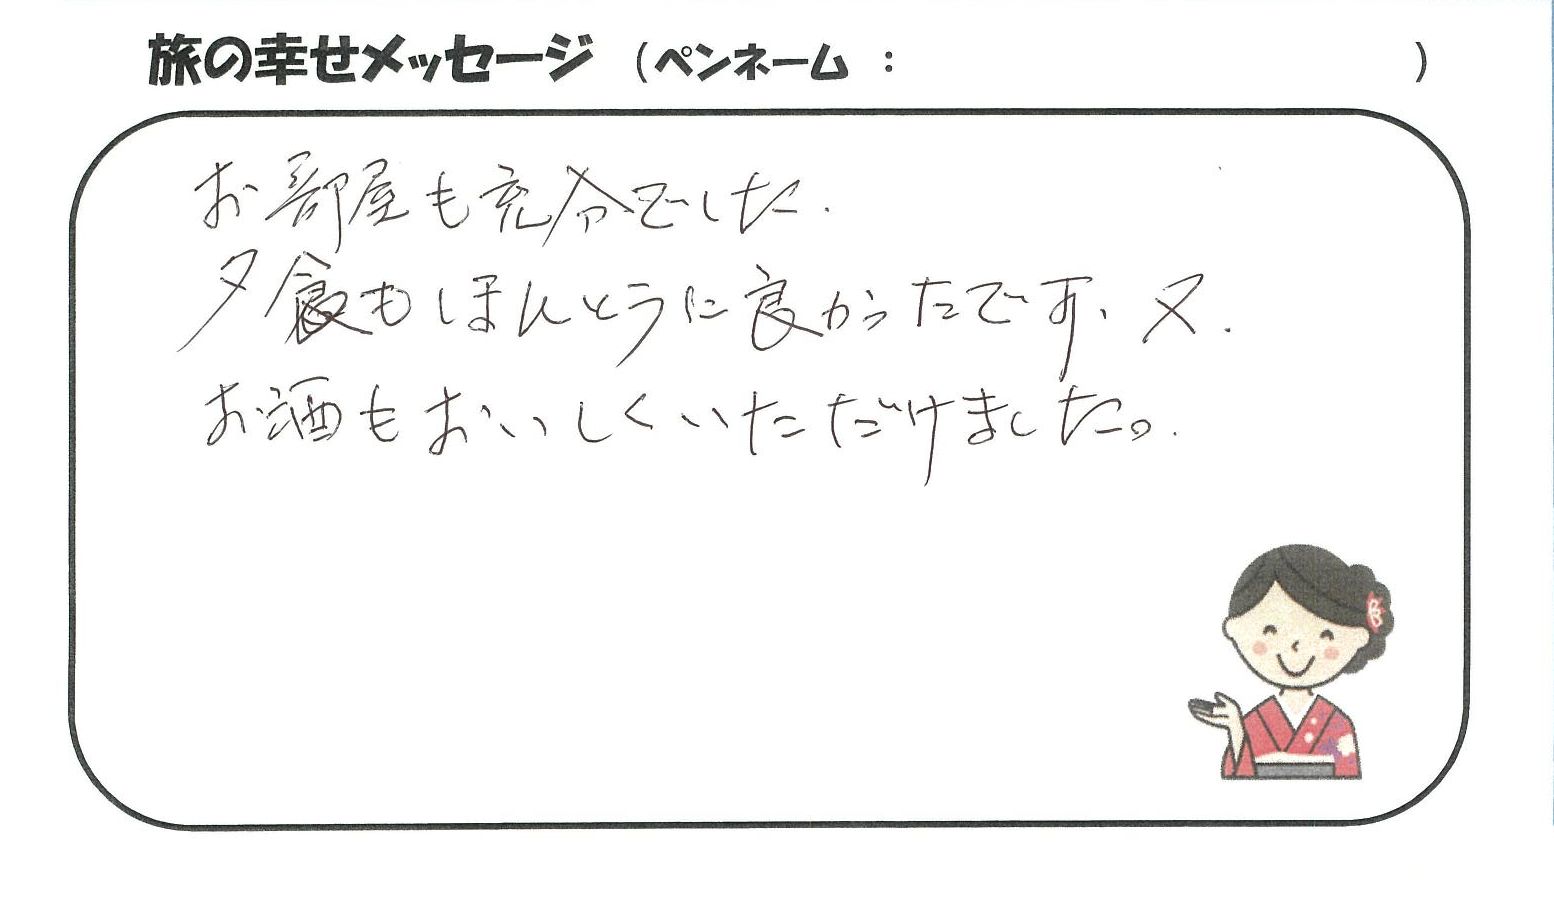 旅の幸せメッセージ（ペンネーム：　　　　　）
お部屋も充分でした.
夕食もほんとうに良かったです、又.
お酒もおいしくいただけました。